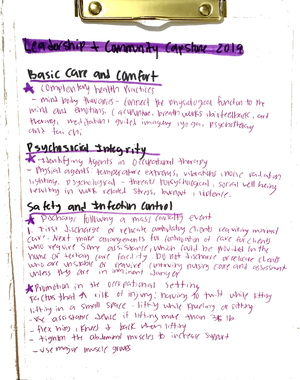 Leadership + Community Capstone 2019
Basic Care and Comfort
★ Complementary health practices
- mind body therapies - connect the physiological function to the
mind and emotions. (acupuncture, breath works, biofeedback, art
therapy, meditation, guided imagery, yoga, psychotherapy
and tai chi)
Psychosocial Integrity
★ Identifying Agents in Occupational therapy
- Physical agents: temperature extremes, vibrations, noise, radiation
lighting. Psychological - threats to psychological, social well being
resulting in work related stress, burnout, violence.
Safety and Infection Control
★ Discharge following a mass casualty event
1. First discharge or relocate ambulatory clients requiring minimal
care. Next make arrangements for continuation of care for clients
who require some assistance, which could be provided in the
home or tertiary care facility. DO not discharge or relocate clients
who are unstable or require continuing nursing care and assessment
unless they are in imminent danger
★ Promotion in the occupational setting
Factors that ↑ risk of injury: having to twist while lifting
lifting in a small space - lifting while kneeling or sitting
- use assistive device if lifting more than 35 lb
- flex hips, knees + back when lifting
- tighten the abdominal muscles to increase support
- use major muscle groups